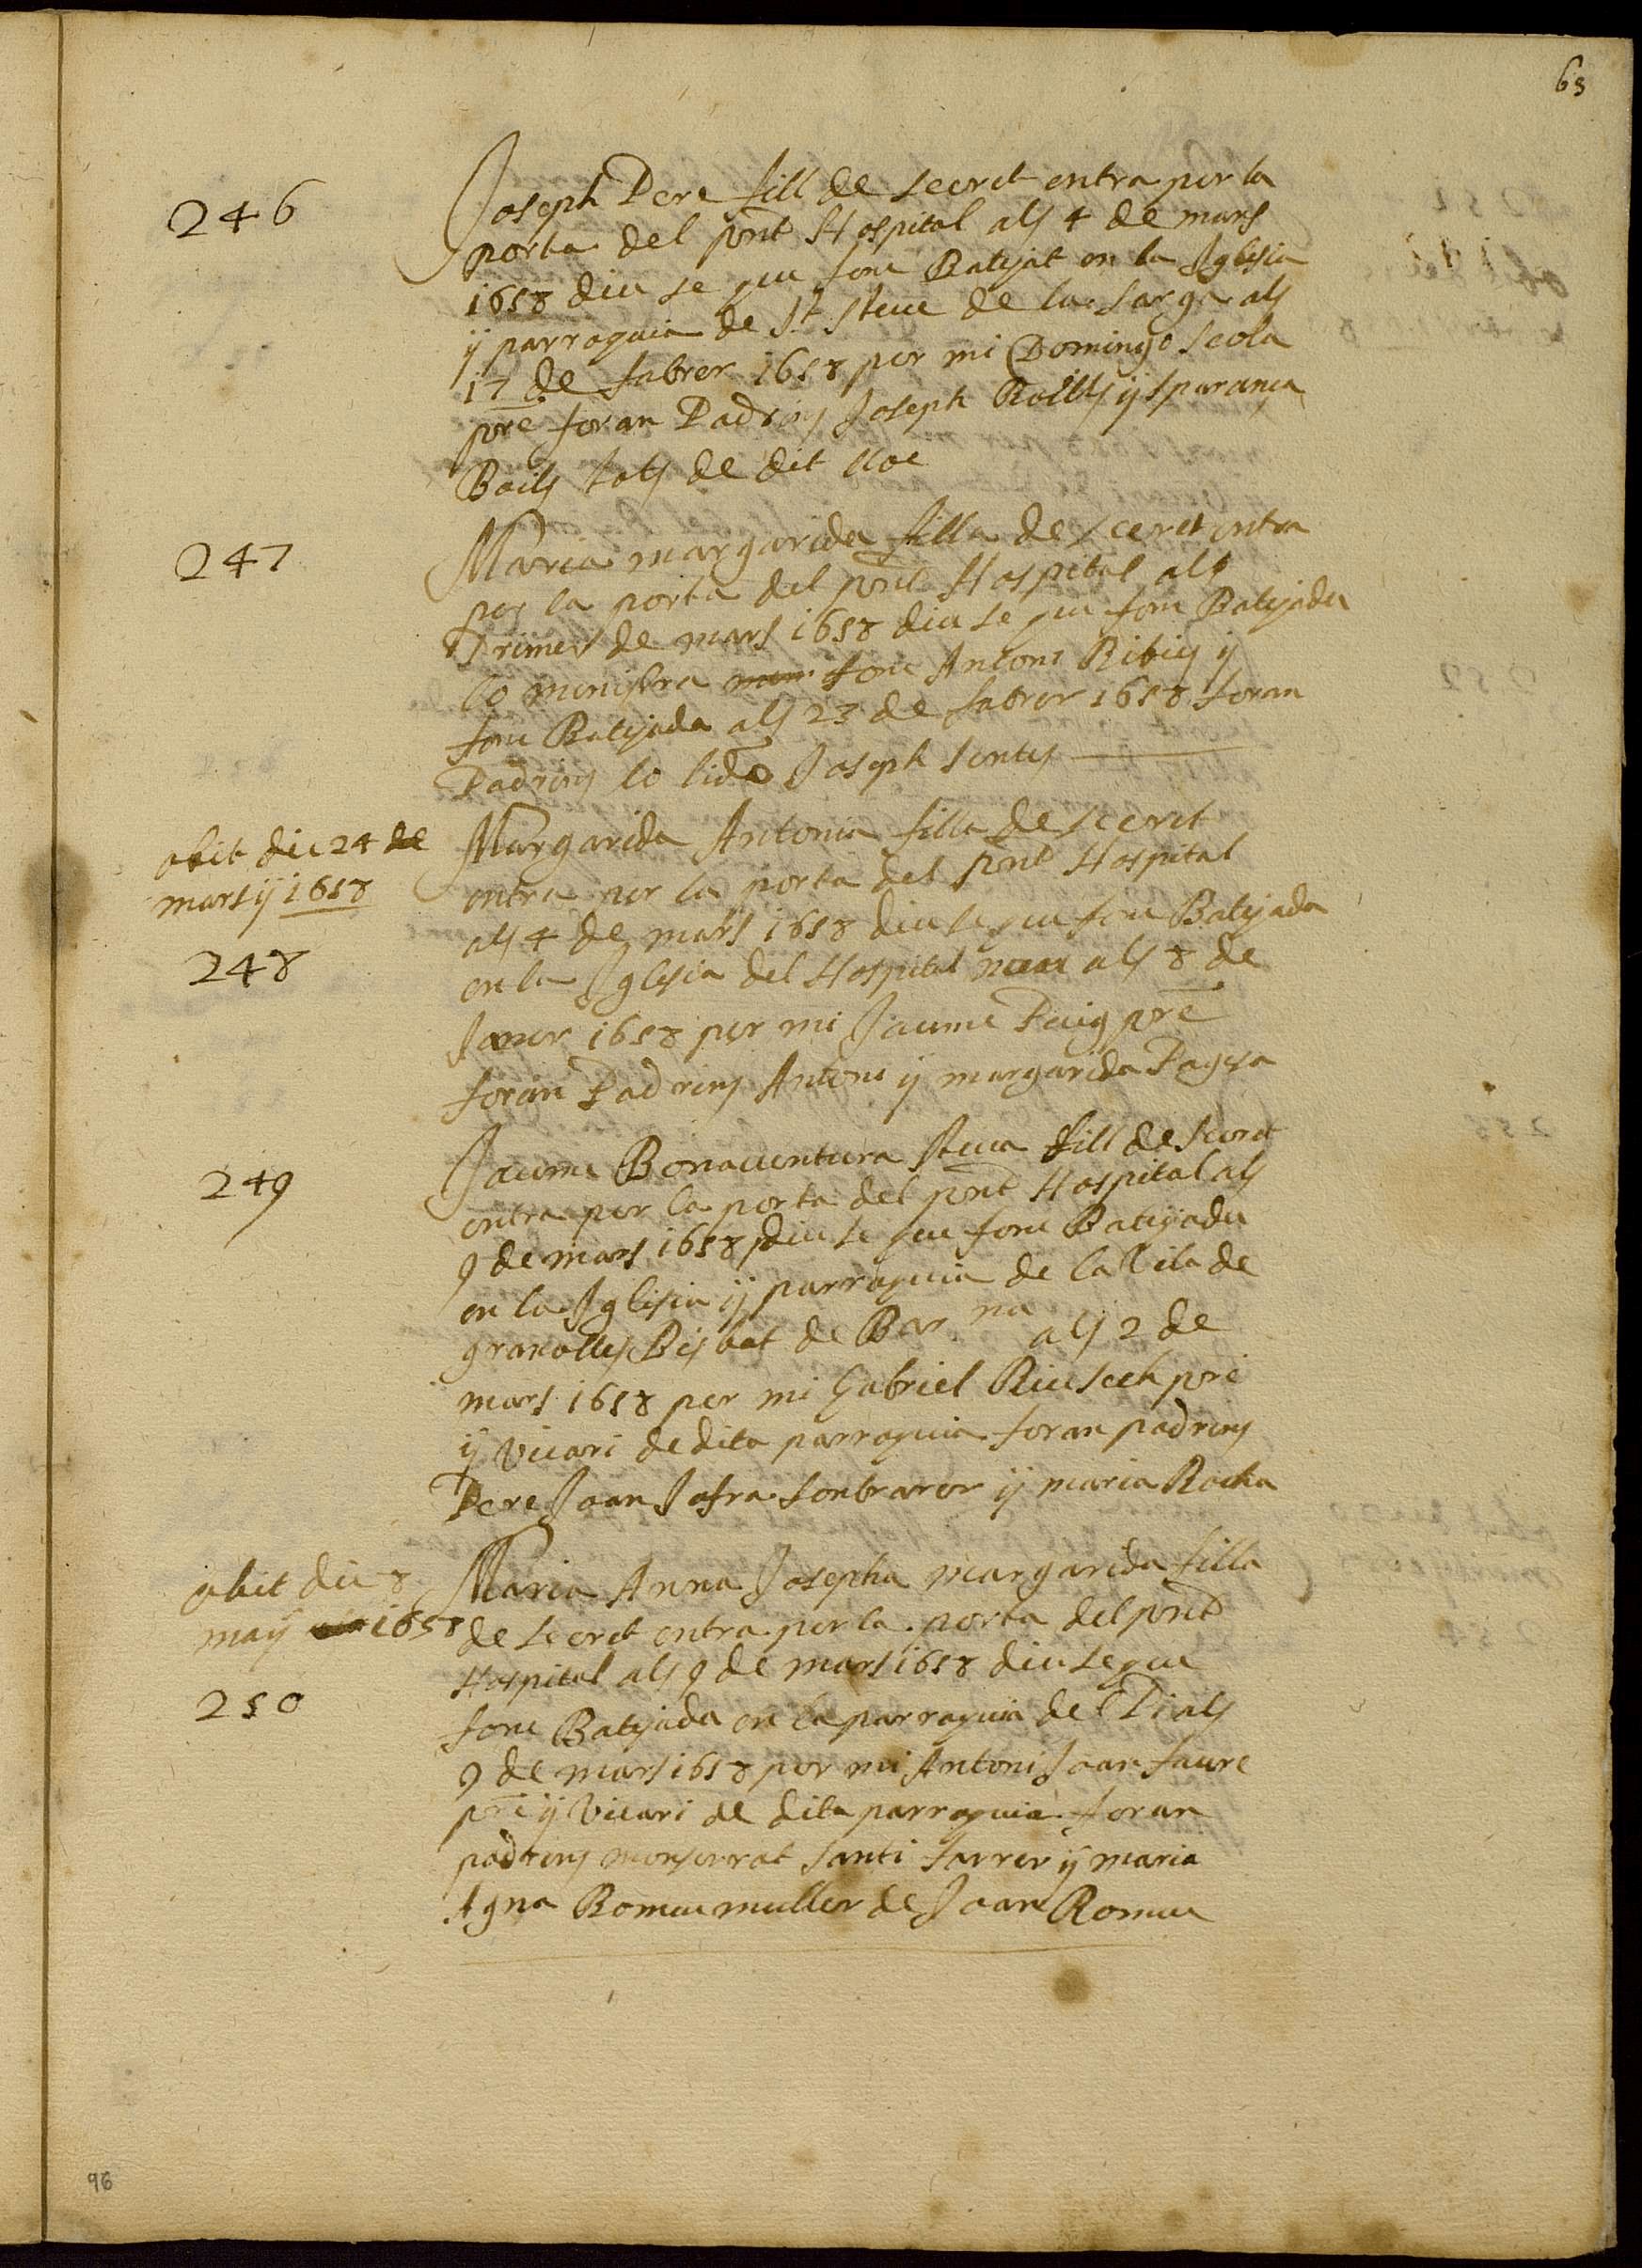 63
246
Joseph Pere fill de secret entra per la
porta del pnt Hospital als 4 de mars
1658 diu se que fonc Batejat en la Iglesia
ÿ parroquia de St Steve de la sarga als
17 de fabrer 1658 per mi Domingo scola
pre foran Padrins Joseph ÿ sparança
Boils tots de dit lloc
247
Maria margarida filla de secret entra
per la porta del pnt Hospital als
Primer de mars 1658 diu se que fonc Batejada
lo ministre fonc Antoni Ribes ÿ
fonc Batejada als 23 de fabrer 1658 foran
Padrins lo lido Joseph sentis
obit die 24 de
mars ÿ 1658
248
Margarida Antonia filla de secret
entra per la porta del pnt Hospital
als 4 de mars 1658 diu se que fonc Batejada
en la Iglesia del Hospital als 8 de
Janer 1658 per mi Jaume Puig pre
foran Padrins Antoni ÿ margarida Pagesa
249
Jaume Bonaventura steva fill de secret
entra per la porta del pnt Hospital als
9 de mars 1658 diu se que fonc Batejada
en la Iglesia ÿ parroquia de la Vila de
granolles Bisbat de Bar na als 2 de
mars 1658 per mi Gabriel Riusech pre
ÿ Vicari de dita parroquia foran padrins
Pere Joan Jofra sombrarer ÿ maria Rocha
obit die 8
maÿ 1658
250
Maria Anna Josepha margarida filla
de secret entra per la porta del pnt
Hospital als 9 de mars 1658 diu se que
fonc Batejada en la parroquia del Pi als
9 de mars 1658 per mi Antoni Joan faure
pre ÿ Vicari de dita parroquia foran
padrins monserrat santi farrer ÿ maria
Agna Romeu muller de Joan Romeu
96